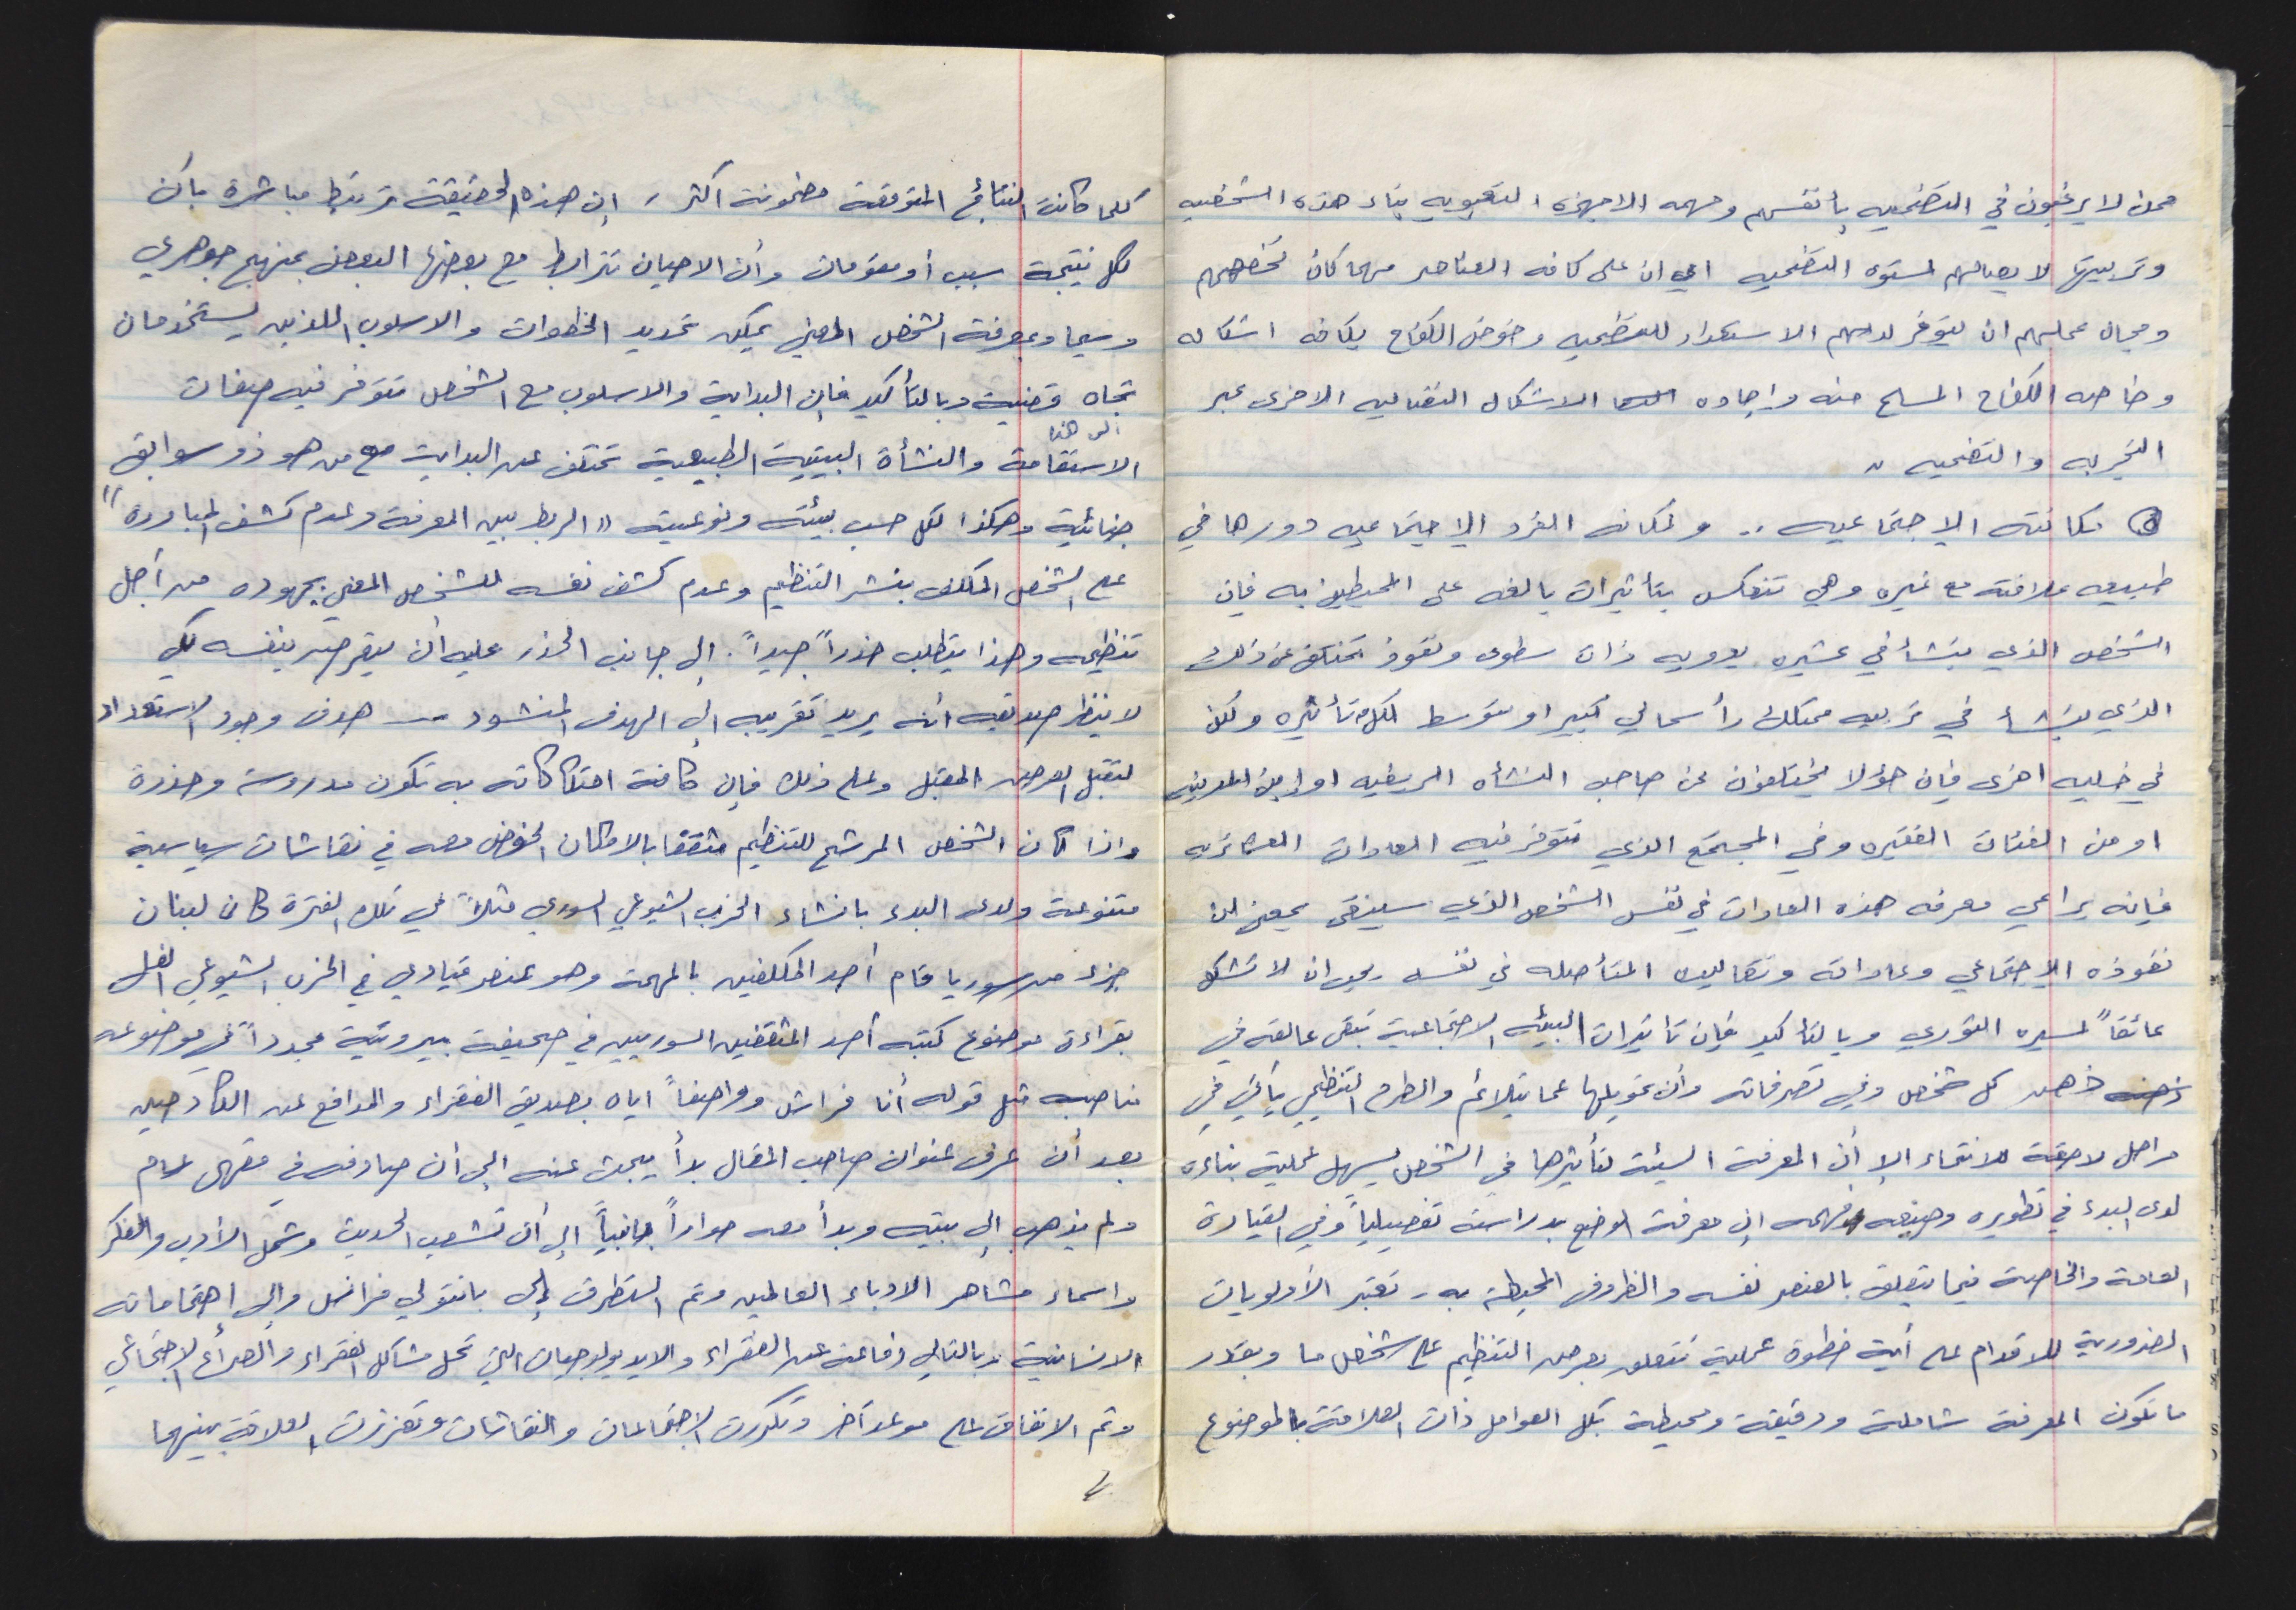 ممن لا يرغبون في التضحيه بأنفسهم ومهمه الاجهزه التعبويه بناء هذه الشخصيه
وتربيتها لايصالهم لمستوى التضحيه اي ان على كافه العناصر مهما كان تخصصهم
ومجال عملهم ان يتوفر لديهم الاستعداد للتضحيه وخوض الكفاح بكافه اشكاله
وخاصه الكفاح المسلح منه واجاده الاشكال النضاليه الاخرى عبر
التجربه والتضحيه "
⑤ مكانته الاجتماعيه .. ولمكانه الفرد الاجتماعيه دورها في
طبيعه علاقته مع غيره وهي تنعكس بتأثيرات بالغه على المحيطين به فإن
الشخص الذي ينشأ في عشيره بدويه ذات سطوى ونفوذ تختلف عن ذلك
الذي ينشأ في قريه ممتلك رأسمالي كبير او متوسط لكل تأثيره ولكن
في خليه اخرى فإن هؤلا يختلفون عن صاحب النشأه الريفيه او ابن المدينه
او من الفئات الفقيره وفي المجتمع الذي تتوفر فيه العادات العشائريه
فإنه يراعي معرفه هذه العادات في نفس الشخص الذي سينتقى بمعنى ان
نفوذه الاجتماعي وعاداته وتقاليده المتأصله في نفسه يجب ان لا تشكل
عائقاً لمسيره الثوري وبالتأكيد فإن تأثيرات البيئه الاجتماعية تبقى عالقه في
ذهن كل شخص وفي تصرفاته وأن تحويلها عما يتلائم والطرح التنظيمي يأتي في
مراحل لاحقة للانتماء الا أن المعرفة السبئة لتأثيرها في الشخص يسهل عملية بناءه
لدى البدء في تطويره وضبطه وفهمه ان معرفة الوضع بدراسته تفصيلياً وفي القيادة
العامة والخاصة فيما يتعلق بالعنصر نفسه والظروف المحيطة به ـ تعتبر الأولويات
الضرورية للاقدام على أية خطوة عملية تتعلق بعرض التنظيم على شخص ما وبقدر
ما تكون المعرفة شاملة ودقيقة ومحيطة بكل العوامل ذات العلاقة بالموضوع
كلما كانت النتائج المتوقعة مضمونة اكثر ، إن هذه الحقيقة ترتبط مباشرة بأن
لكل نتيجة سبب أو مقومات وأن الاحيان تترابط مع بعضها البعض بمنهج جوهري
وسيما وبمعرفة الشخص المعني يمكن تحديد الخطوات والاسلوب اللذين يستخدمان
تجاه قضية وبالتأكيد فإن البداية والاسلوب مع الشخص تتوفر فيه صفات
الاستقامة والنشأة البيتية الطبيعية تختلف عن البداية مع من هو ذو سوابق
جنائية وهكذا لكل حسب بيئته ونوعيته " الربط بين المعرفة وعدم كشف المبادرة "
على الشخص المكلف بنشر التنظيم وعدم كشف نفسه للشخص المعني بجهوده من أجل
تنظيمه وهذا يتطلب حذراً جيداً . الى جانب الحذر عليه أن يقرر بنفسه لكي
لا ينظر صديقه أنه يريد تقريبه الى الهدف المنشود ـ هدف وجود الاستعداد
لتقبل العرض المقبل وعلى ذلك فإن كافة احتكاكاته به تكون مدروسة وحذرة
واذا كان الشخص المرشح للتنظيم مثقفا بالامكان الخوض معه في نقاشات سياسية
متنوعة ولدى البدء بانشاء الحزب الشيوعي السوري مثلاً في تلك الفترة كان لبنان
جزء من سوريا قام أحد المكلفين بالمهمة وهو عنصر قيادي في الحزب الشيوعي
بقراءة موضوع كتبه أحد المثقفين السوريين في صحيفة بيروتية مجدداً في موضوعه
مناصبه مثل قوله أنا فرانس وواصفاً اياه بصديق الفقراء والمدافع عن الكادحين
بعد أن عرف عنوان صاحب المقال بدأ يبحث عنه الى أن صادفه في مقهى عام
ولم يذهب الى بيته وبدأ معه حواراً جانبياً الى أن تشعب الحديث وشمل الأدب والفكر
واسماء مشاهر الادباء العالميين وتم التطرق الى باناتولي فرانس والى إهتماماته
الانسانية وبالتالي دفاعه عن الفقراء والايديولوجيات التي تحل مشاكل الفقراء والصراع الاجتماعي
وتم الاتفاق على موعد آخر وتكررت الاجتماعات والنقاشات وتعززت العلاقة بينهما